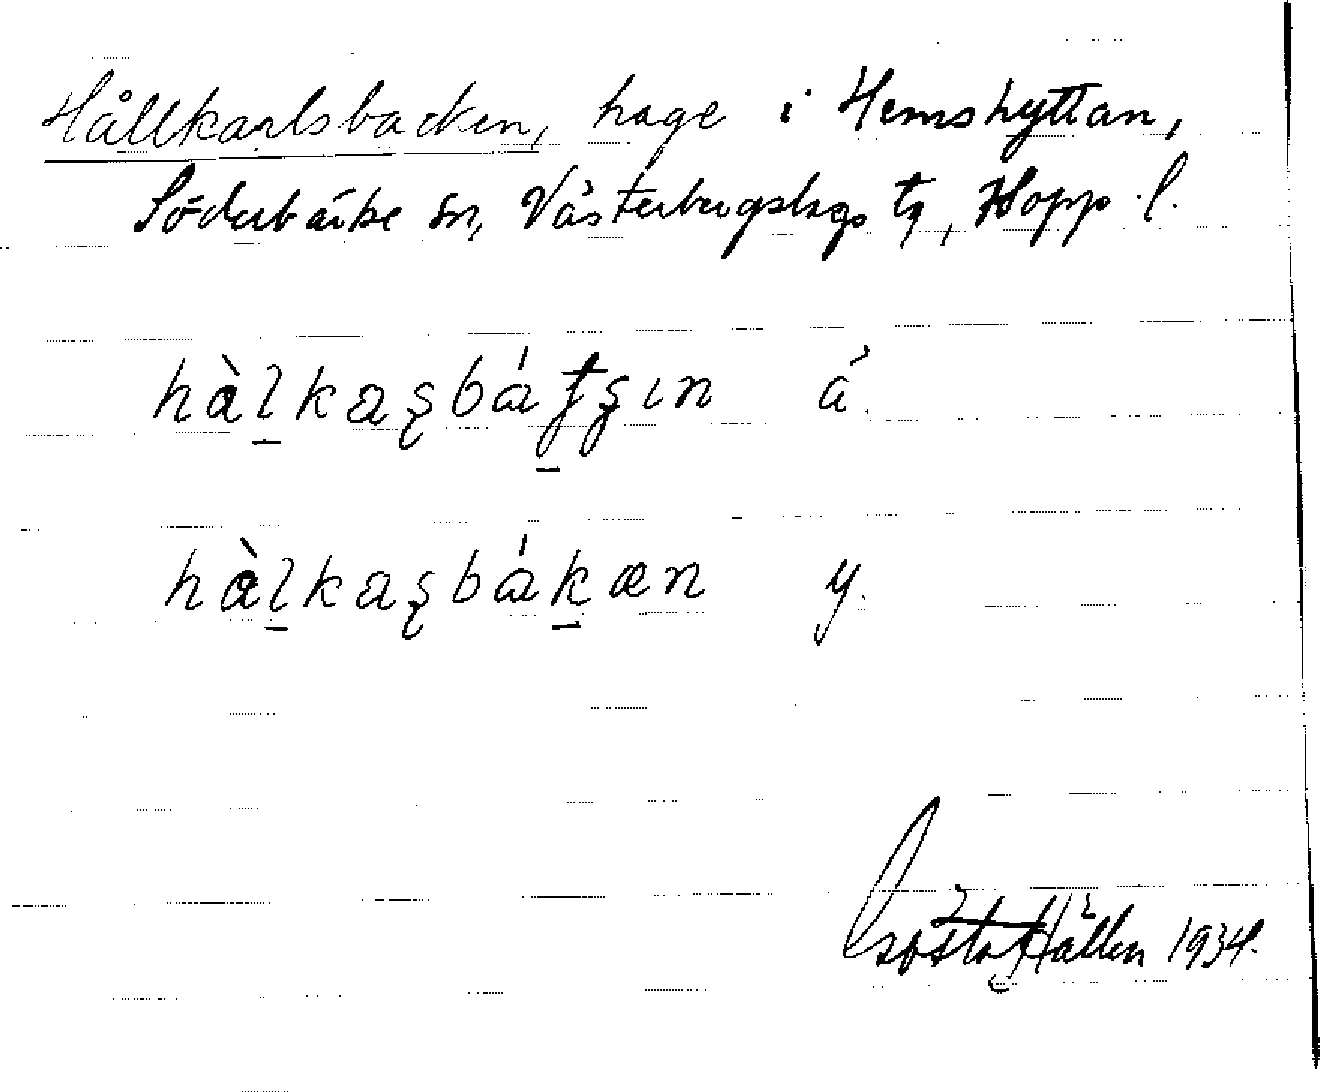 Hållkarlsbacken, hage i Hemshyttan,
Söderbärke sn, Västerbergslags tg, Kopp. l.
hàl̠kaʂbáț̠ʂın á.
hàl̠kaʂbák̠æn y.
Gösta Hållen 1934.